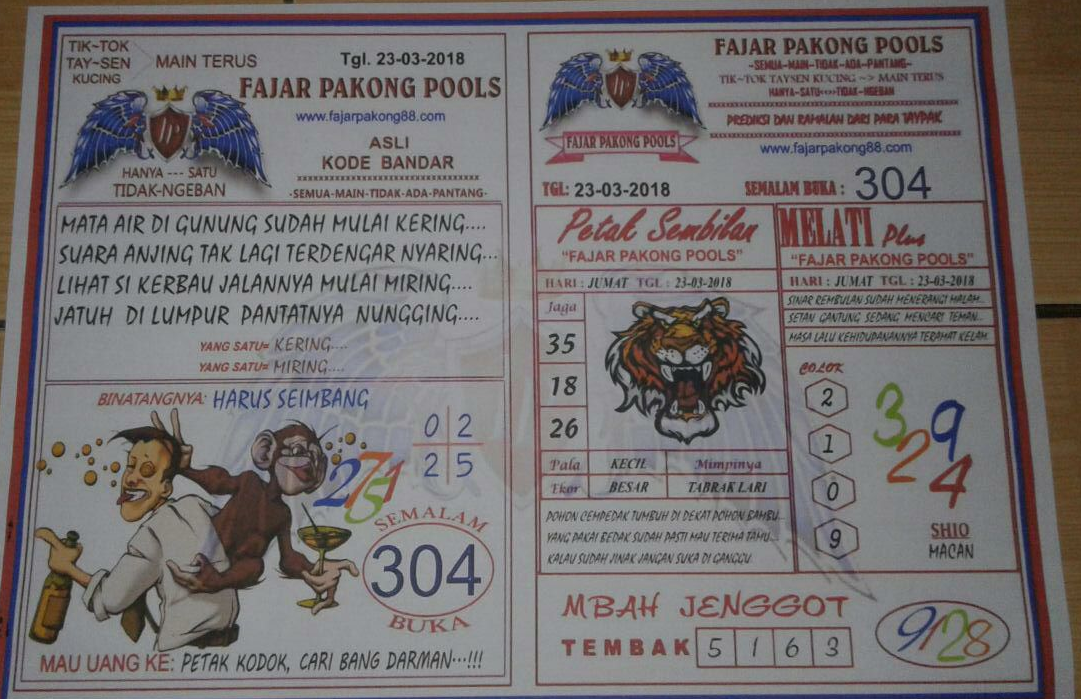 TIK~TOK
TAY~SEN
KUCING
MAIN TERUS
Tgl. 23-03-2018
FAJAR PAKONG POOLS
www.fajarpakong88.com
HANYA --- SATU
TIDAK-NGEBAN
ASLI
KODE BANDAR
-SEMUA-MAIN-TIDAK-ADA-PANTANG-
MATA AIR DI GUNUNG SUDAH MULAI KERING....
SUARA ANJING TAK LAGI TERDENGAR NYARING...
LIHAT SI KERBAU JALANNYA MULAI MIRING....
JATUH DI LUMPUR PANTATNYA NUNGGING....
YANG SATU= KERING....
YANG SATU= MIRING....
BINATANGNYA: HARUS SEIMBANG
0 2
2 5
SEMALAM
304
BUKA
MAU UANG KE: PETAK KODOK, CARI BANG DARMAN...!!!
FAJAR PAKONG POOLS
FAJAR PAKONG POOLS
~SEMUA---MAIN--TIDAK~ADA~PANTANG~
TIK~TOK TAYSEN KUCING ~> MAIN TERUS
HANYA~SATU<><>TIDAK~NGEBAN
PREDIKSI DAN RAMALAN DARI PARA TAYPAK
www.fajarpakong88.com
TGL: 23-03-2018
SEMALAM BUKA : 304
Petak Sembilan
"FAJAR PAKONG POOLS"
HARI : JUMAT TGL : 23-03-2018
Jaga
35
18
26
Pala KECIL Mimpinya
Ekor BESAR TABRAK LARI
POHON CEMPEDAK TUMBUH DI DEKAT POHON BAMBU...
YANG PAKAI BEDAK SUDAH PASTI MAU TERIMA TAMU...
KALAU SUDAH JINAK JANGAN SUKA DI GANGGU
MELATI Plus
"FAJAR PAKONG POOLS"
HARI : JUMAT TGL : 23-03-2018
SINAR REMBULAN SUDAH MENERANGI MALAM...
SETAN GANTUNG SEDANG MENCARI TEMAN...
MASA LALU KEHIDUPANANNYA TERAMAT KELAM
COLOK
2
1
0
9
3 9
2 4
SHIO
MACAN
MBAH JENGGOT
TEMBAK 5 1 6 3
9128